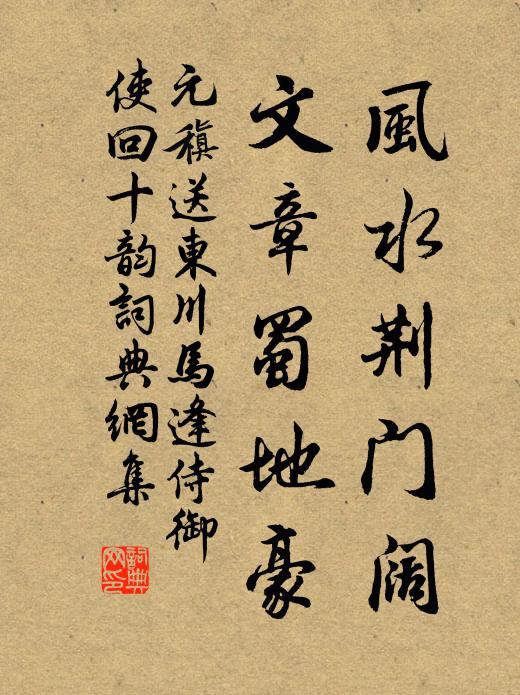 風水荆门阔
文章蜀地豪
元稹送東川馬逢侍御
使回十韵詞典網集
詞典网印